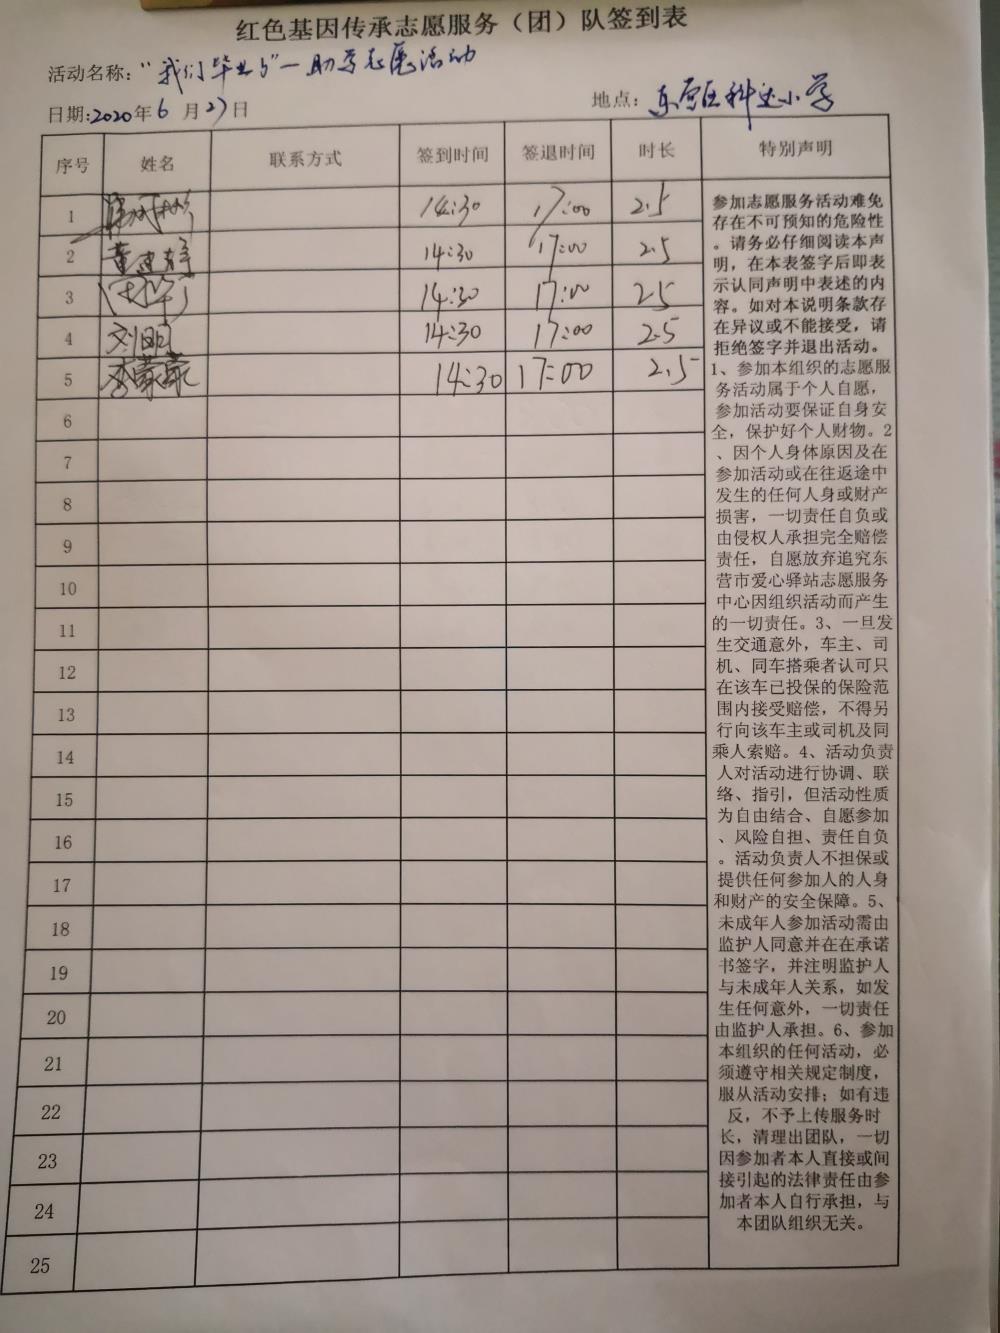 红色基因传承志愿服务（团）队签到表
活动名称：“我们毕业了”一助学志愿活动
日期:2020年6月27日
地点：东营区科达小学
序号 姓名 联系方式 签到时间 签退时间 时长 特别声明
1 14:30 17:00 2.5
2 14:30 17:00 2.5
3 14:30 17:00 2.5
4 刘明 14:30 17:00 2.5
5 李蒙蒙 14:30 17:00 2.5
6
7
8
9
10
11
12
13
14
15
16
17
18
19
20
21
22
23
24
25
参加志愿服务活动难免
存在不可预知的危险性
。请务必仔细阅读本声
明，在本表签字后即表
示认同声明中表述的内
容。如对本说明条款存
在异议或不能接受，请
拒绝签字并退出活动。
1、参加本组织的志愿服
务活动属于个人自愿，
参加活动要保证自身安
全，保护好个人财物。2
、因个人身体原因及在
参加活动或在往返途中
发生的任何人身或财产
损害，一切责任自负或
由侵权人承担完全赔偿
责任，自愿放弃追究东
营市爱心驿站志愿服务
中心因组织活动而产生
的一切责任。3、一旦发
生交通意外，车主、司
机、同车搭乘者认可只
在该车已投保的保险范
围内接受赔偿，不得另
行向该车主或司机及同
乘人索赔。4、活动负责
人对活动进行协调、联
络、指引，但活动性质
为自由结合、自愿参加
、风险自担、责任自负
。活动负责人不担保或
提供任何参加人的人身
和财产的安全保障。5、
未成年人参加活动需由
监护人同意并在在承诺
书签字，并注明监护人
与未成年人关系，如发
生任何意外，一切责任
由监护人承担。6、参加
本组织的任何活动，必
须遵守相关规定制度，
服从活动安排；如有违
反，不予上传服务时
长，清理出团队，一切
因参加者本人直接或间
接引起的法律责任由参
加者本人自行承担，与
本团队组织无关。